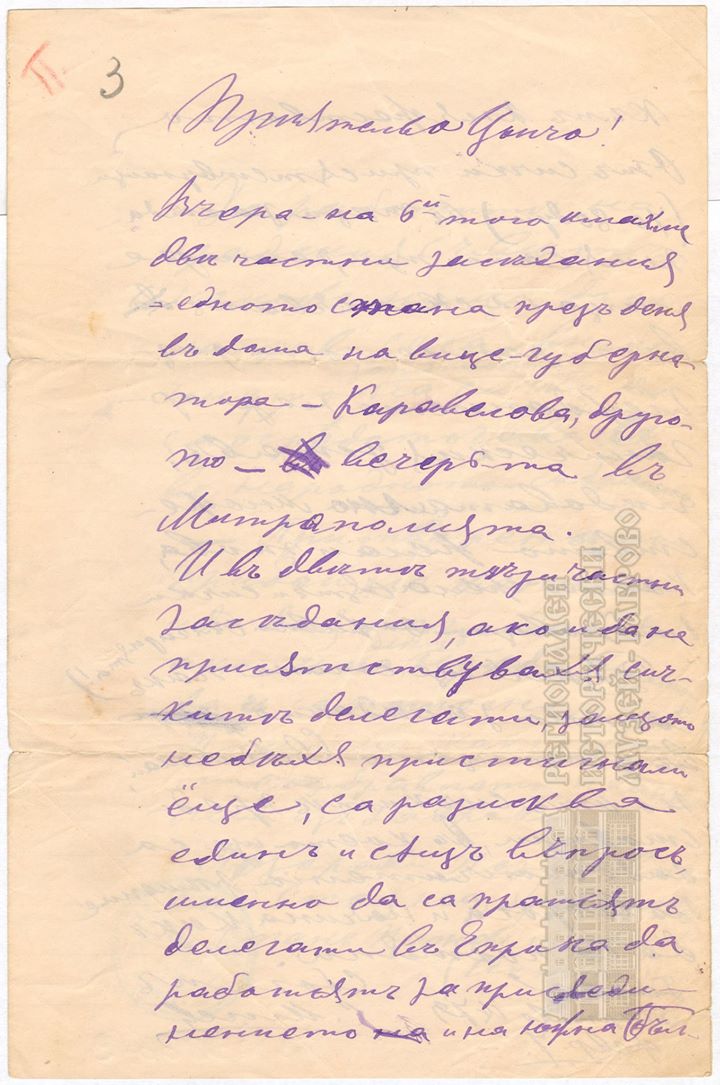 П. 3
Приятельо Цончо!
Вчера – на 6ий того имахме
двѣ частни засѣдания
– едното стана презъ деня
въ дома на вице-губерна-
тора – Каравелова, друго-
то – вечерьта въ
Митрополията.
И въ двѣтѣ тѣзи частни
засѣдания, ако и да не
присѫтствувахѫ сич-
китѣ делегати, защото
небѣхѫ пристигнали
ёще, са разисква
единъ и сѫщъ въпросъ,
именно да са пратятъ
делегати въ Европа да
работятъ за присъеди-
нението и на южна Бъл-
РЕГИОНАЛЕН
ИСТОРИЧЕСКИ
МУЗЕЙ - ГАБРОВО